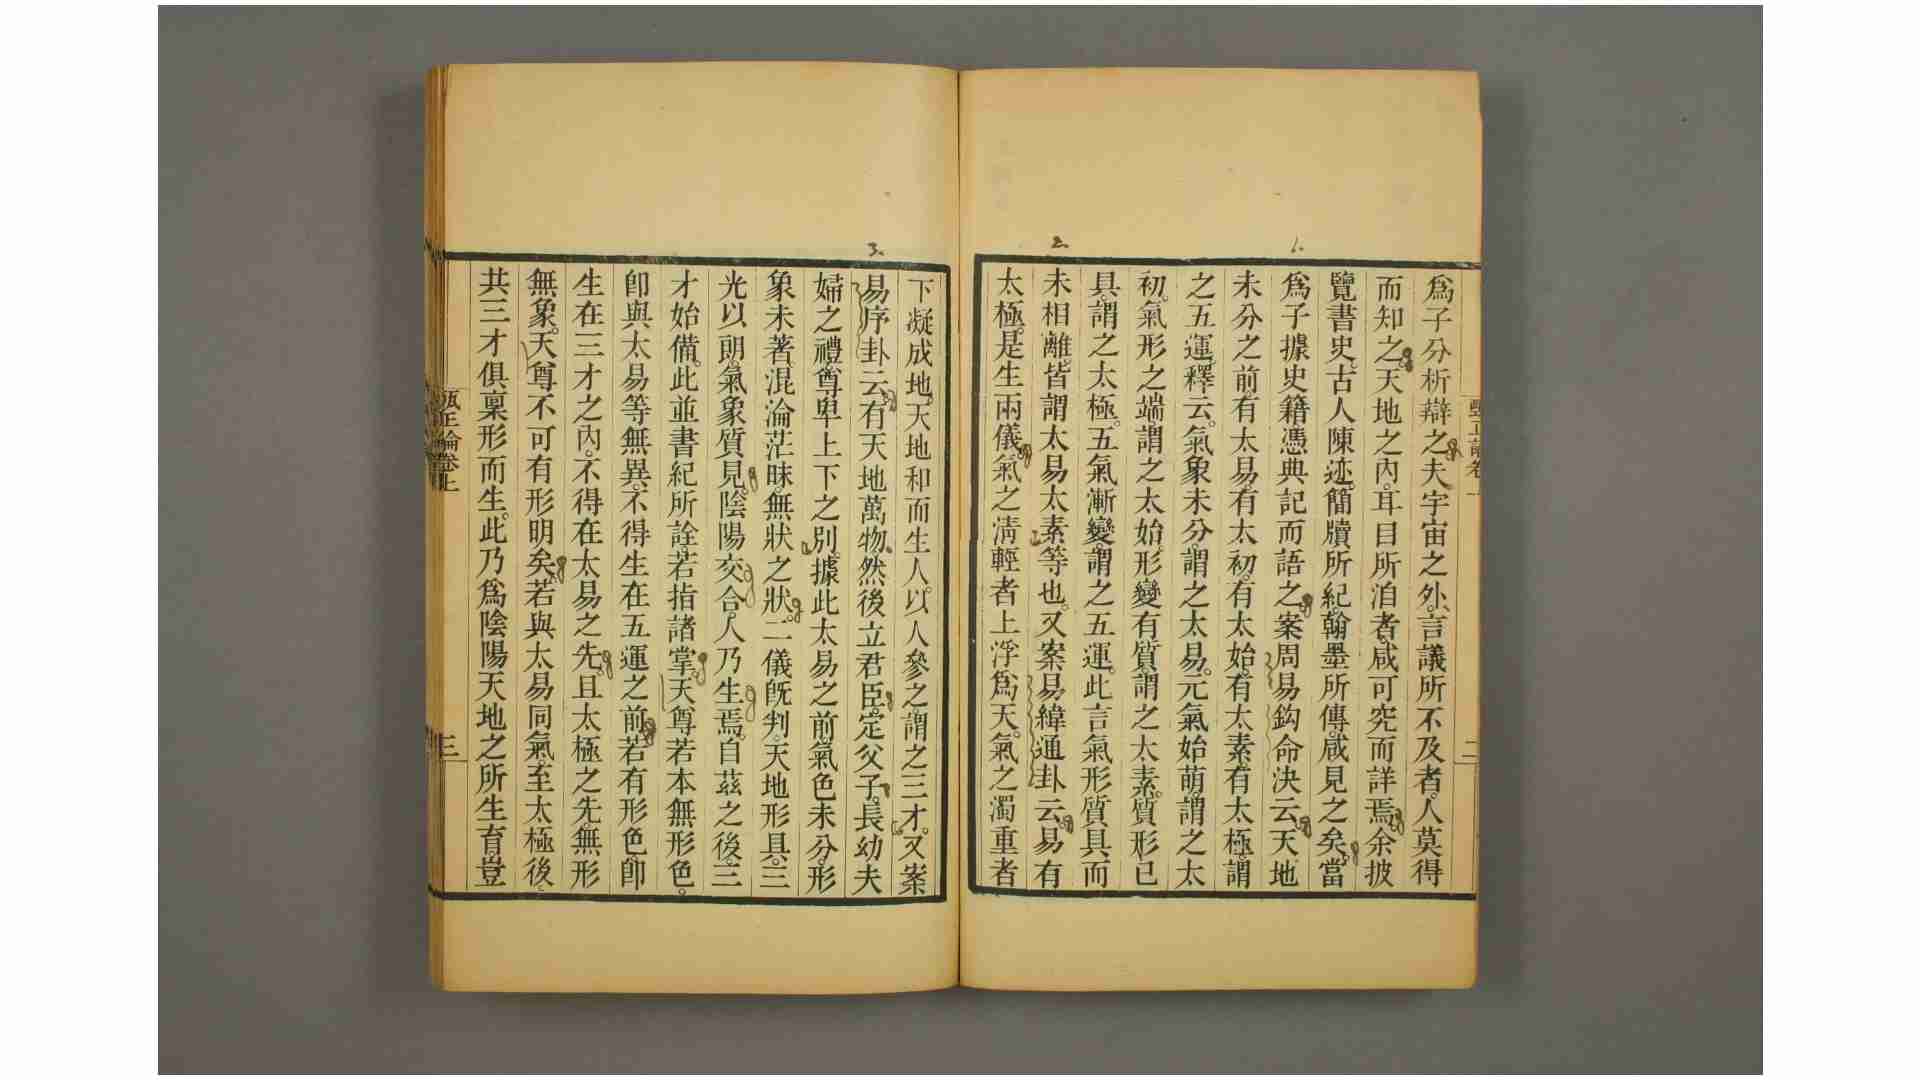 1.
2.
爲子分析辯之夫宇宙之外言議所不及者人莫得
而知之天地之內耳目所洎者咸可究而詳焉余披
覽書史古人陳迹簡牘所紀翰墨所傳咸見之矣當
爲子據史籍憑典記而語之案周易鈎命決云天地
未分之前有太易有太初有太始有太素有太極謂
之五運釋云氣象未分謂之太易元氣始萌謂之太
初氣形之端謂之太始形變有質謂之太素質形已
具謂之太極五氣漸變謂之五運此言氣形質具而
未相離皆謂太易太素等也又案易緯通卦云易有
太極是生兩儀氣之淸輕者上浮爲天氣之濁重者
二
3.
下凝成地天地和而生人以人參之謂之三才又案
易序卦云有天地萬物然後立君臣定父子長幼夫
婦之禮尊卑上下之別據此太易之前氣色未分形
象未著混淪茫昧無狀之狀二儀旣判天地形具三
光以朗氣象質見陰陽交合人乃生焉自茲之後三
才始備此並書紀所詮若指諸掌天尊若本無形色
卽與太易等無異不得生在五運之前若有形色卽
生在三才之內不得在太易之先且太極之先無形
無象天尊不可有形明矣若與太易同氣至太極後
共三才俱稟形而生此乃爲陰陽天地之所生育豈
甄正論卷上
三